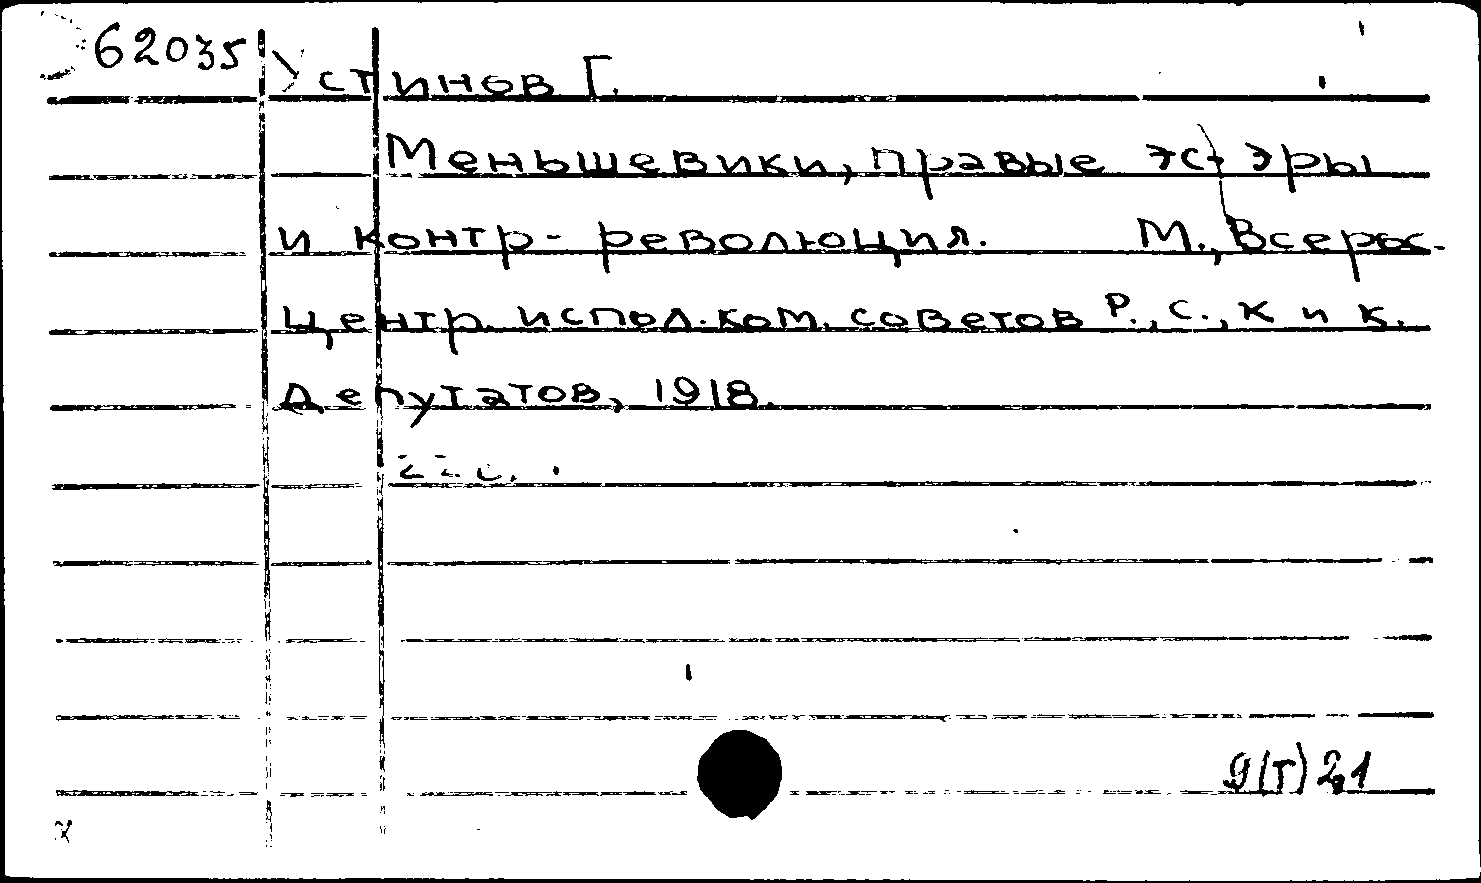 62035 Устинов Г.
Меньшевики, правые эс-эры
и контр-революция. М., Всерос.
центр. испол. ком. советов Р., С., К и к.
депутатов, 1918.
22 с.
9(Т)21